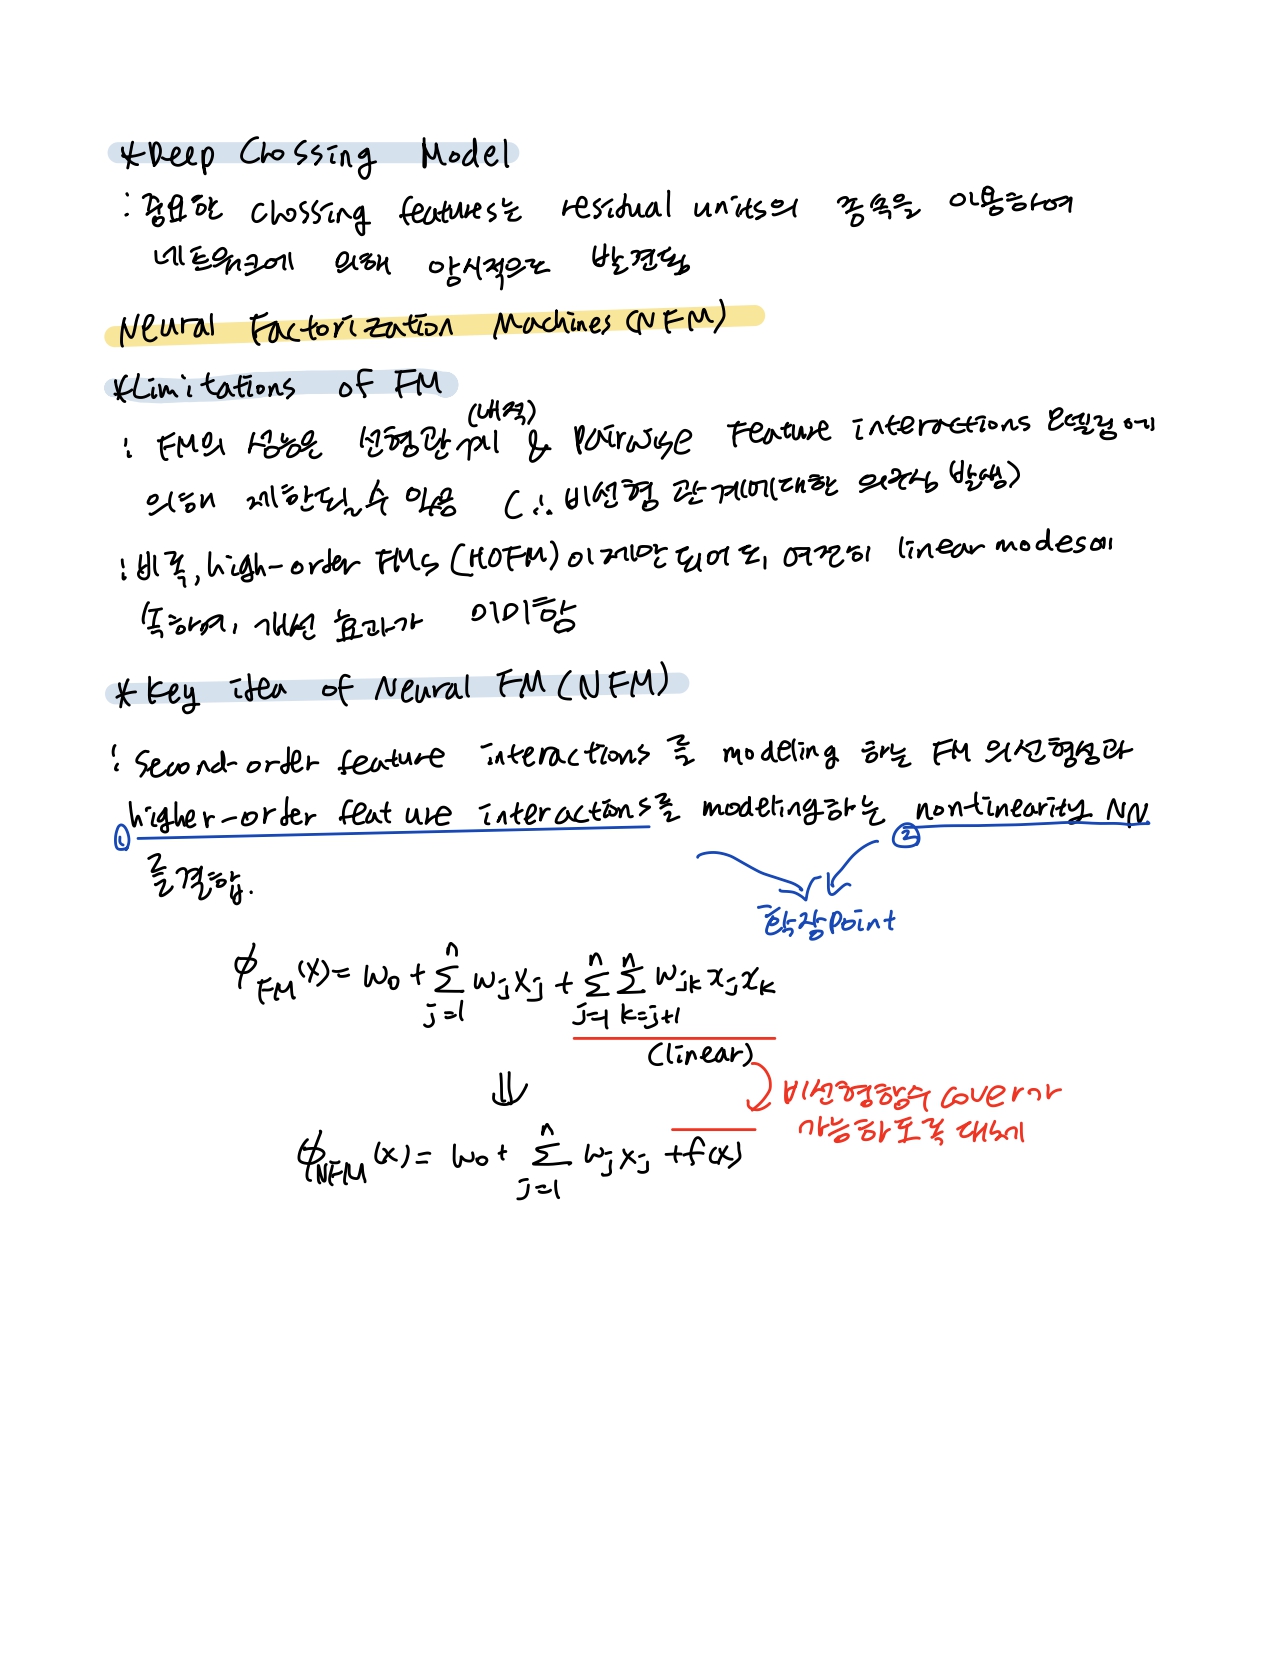 *Deep Crossing Model
: 중요한 crossing features는 residual units의 종속을 이용하여
네트워크에 의해 암시적으로 발견됨
Neural Factorization Machines(NFM)
*Limitations of FM
(내적)
: FM의 성능은 선형관계 & Pairwise Feature interactions 모델링에
의해 제한될 수 있음 (∴ 비선형 관계에대한 의구심 발생)
: 비록, high-order FMs (HOFM)이 제안되어도, 여전히 linear modes에
속하여, 개선 효과가 미미함
* Key idea of Neural FM(NFM)
: Second-order feature interactions를 modeling 하는 FM의선형성과
① higher-order feature interactions를 modeling하는 ② nontinearity NN
를결합.
확장Point
ϕ_FM(x) = w₀ + Σ_{j=1}^{n} w_j x_j + Σ_{j=1}^{n} Σ_{k=j+1}^{n} w_{jk} x_j x_k
(linear)
⇓
비선형함수 cover가
가능하도록 대체
ϕ_NFM(x) = w₀ + Σ_{j=1}^{n} w_j x_j + f(x)